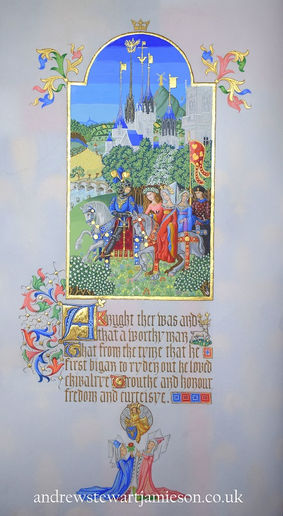 A Knyght ther was and
that a worthy man
That from the tyme that he
first bigan to ryden out he loved
chivalrie Trouthe and honour
fredom and curteisye.
andrewstewartjamieson.co.uk